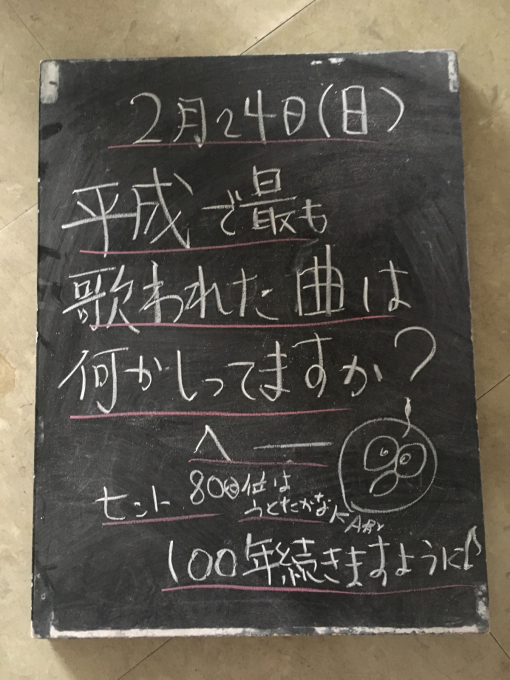 2月24日(日)
平成で最も
歌われた曲は
何かしってますか?
へー
ヒント 80回位は
うたたかな
100年続きますように♪